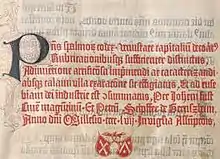 Pñs spalmoꝝ codex venustate capitaliũ decorat⁹
Rubricationibusqꝫ sufficienter distinctus,
Adinuentione artificiosa imprimendi ac caracterizandi
absqꝫ calami vlla exaracone sic effigiatus, Et ad euse-
biam dei industrie est ꝯsummatus, Per Joheñ fust
Ciuẽ magũtinũ, Et Petrũ Schoffer de Gernszheim
Anno dñi Millesimo .cccc.lvij. In vigilia Assũpcõis